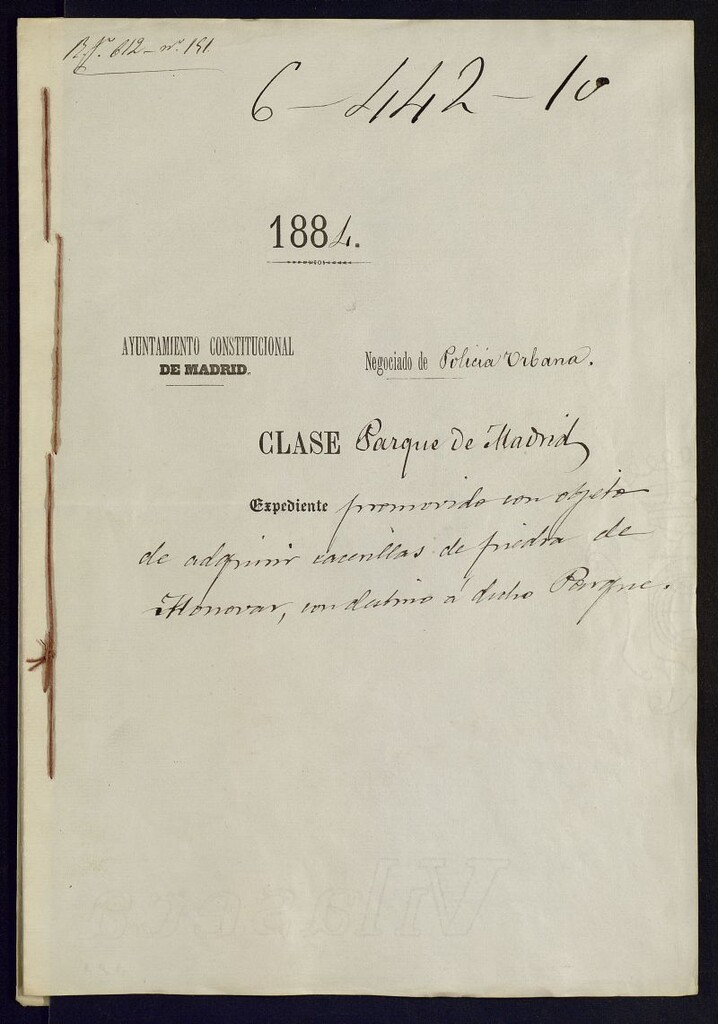 Rº. fº. 612 – nº. 191
6 – 442 – 10
1884.
AYUNTAMIENTO CONSTITUCIONAL
DE MADRID.
Negociado de Policia Urbana.
CLASE Parque de Madrid
Expediente promovido con objeto
de adquirir de piedra de
Monovar, con destino á dicho Parque.